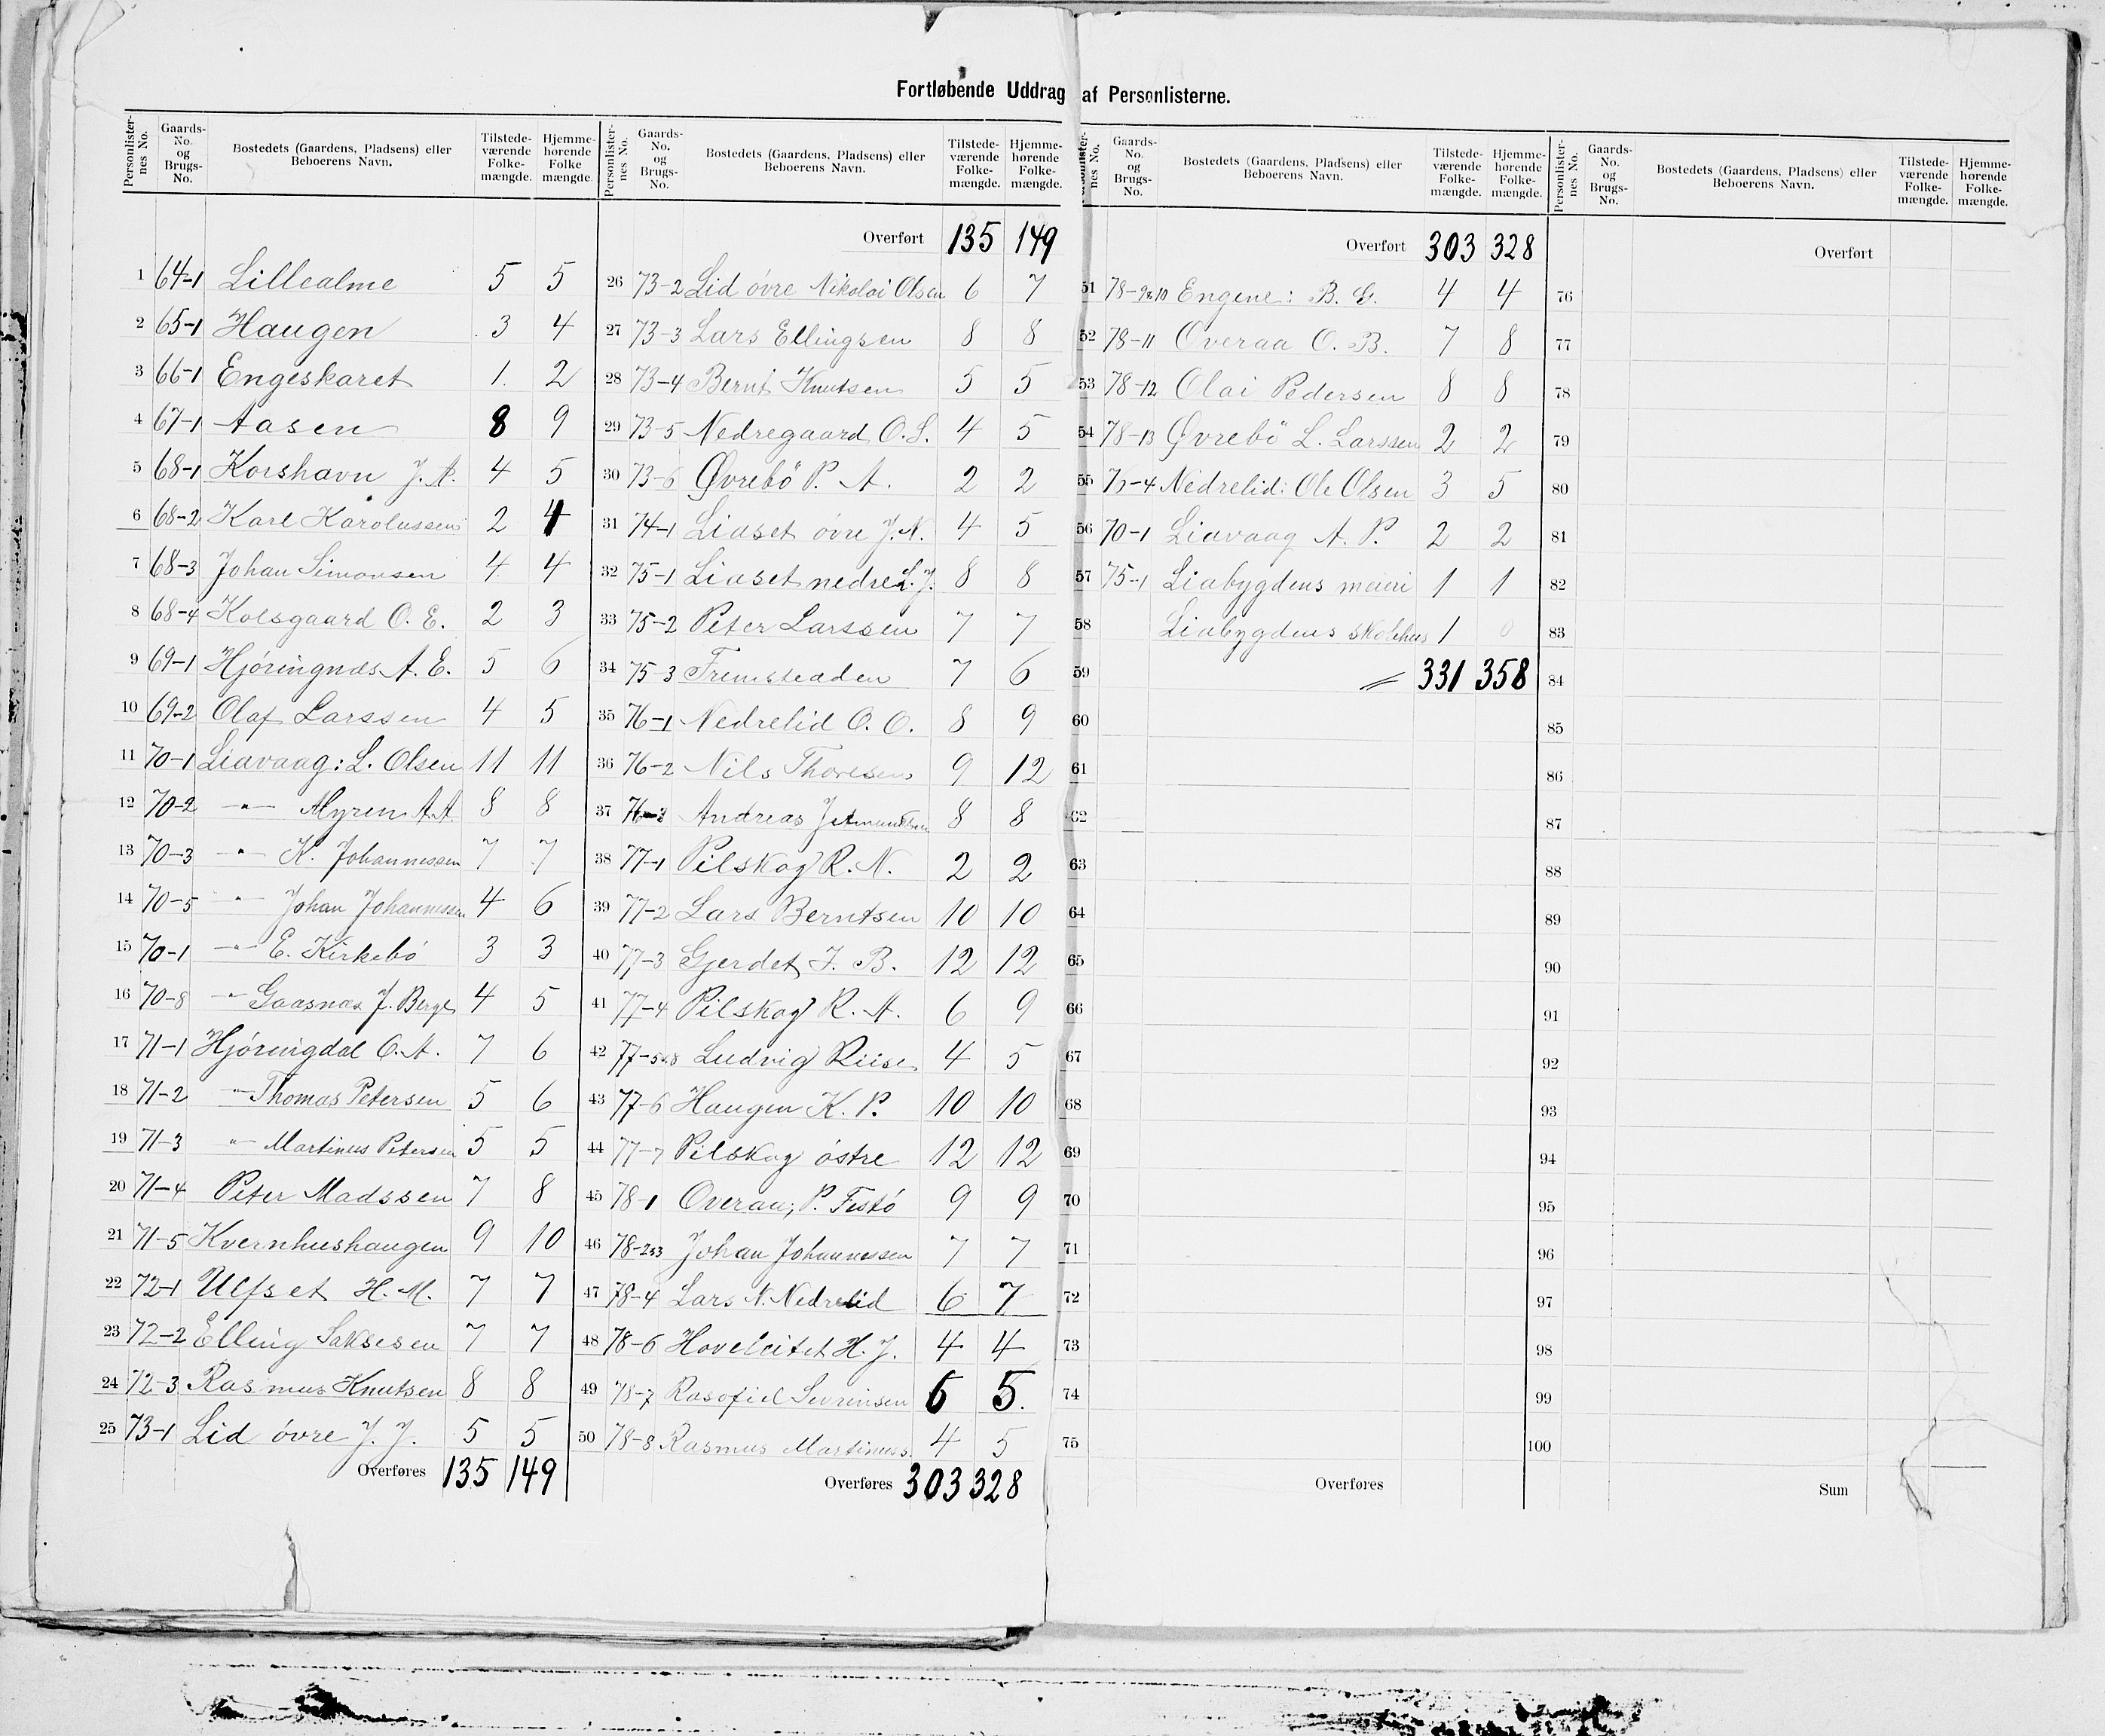 Fortløbende Uddrag af Personlisterne.
Personlisternes No. Gaards-No. og Brugs-No. Bostedets (Gaardens, Pladsens) eller Beboerens Navn. Tilstedeværende Folkemængde. Hjemmehørende Folke mængde.
1 64-1 Lillealme 5 5
2 65-1 Haugen 3 4
3 66-1 Engeskaret 1 2
4 67-1 Aasen 8 9
5 68-1 Korshavn J. A. 4 5
6 68-2 Karl Karolussen 2 4
7 68-3 Johan Simonsen 4 4
8 68-4 Kolsgaard O. E. 2 3
9 69-1 Hjøringnæs A. E. 5 6
10 69-2 Olaf Larssen 4 5
11 70-1 Liavaag: L. Olsen 11 11
12 70-2 —"— Myren A. A. 8 8
13 70-3 —"— K. Johannessen 7 7
14 70-5 —"— Johan Johannessen 4 6
15 70-1 —"— E. Kirkebø 3 3
16 70-8 —"— Gaasnæs J. Berge 4 5
17 71-1 Hjøringdal O. A. 7 6
18 71-2 —"— Thomas Petersen 5 6
19 71-3 —"— Martinus Petersen 5 5
20 71-4 Peter Madssen 7 8
21 71-5 Kvernhushaugen 9 10
22 72-1 Ulfset H. M. 7 7
23 72-2 Elling Saksesen 7 7
24 72-3 Rasmus Knutsen 8 8
25 73-1 Lid øvre J. J. 5 5
Overføres 135 149
Personlisternes No. Gaards-No. og Brugs-No. Bostedets (Gaardens, Pladsens) eller Beboerens Navn. Tilstedeværende Folkemængde. Hjemmehørende Folkemængde.
Overført 135 149
26 73-2 Lid øvre Nikolai Olsen 6 7
27 73-3 Lars Ellingsen 8 8
28 73-4 Bernt Knutsen 5 5
29 73-5 Nedregaard O. S. 4 5
30 73-6 Øvrebö P. A. 2 2
31 74-1 Liaset øvre J. N. 4 5
32 75-1 Liaset nedre L. J. 8 8
33 75-2 Peter Larssen 7 7
34 75-3 Fremsteaden 7 6
35 76-1 Nedrelid O. O. 8 9
36 76-2 Nils Thoresen 9 12
37 76-3 Andreas J. Amundsen 8 8
38 77-1 Pilskog R. N. 2 2
39 77-2 Lars Berntsen 10 10
40 77-3 Gjerdet J. B. 12 12
41 77-4 Pilskog R. A. 6 9
42 77-5&8 Ludvig Riise 4 5
43 77-6 Haugen K. P. 10 10
44 77-7 Pilskog østre 12 12
45 78-1 Overaa; P. Festø 9 9
46 78-2&3 Johan Johannessen 7 7
47 78-4 Lars N. Nedrelid 6 7
48 78-6 Hovelcitet H. J. 4 4
49 78-7 Rasofiel Sevrinsen 6 5.
50 78-8 Rasmus Martinuss. 4 5
Overføres 303 328
Personlisternes No. Gaards-No. og Brugs-No. Bostedets (Gaardens, Pladsens) eller Beboerens Navn. Tilstedeværende Folkemængde. Hjemmehørende Folkemængde.
Overført 303 328
51 78-9&10 Engene: B. G. 4 4
52 78-11 Overaa O. B. 7 8
53 78-12 Olai Pedersen 8 8
54 78-13 Øvrebö L. Larssen 2 2
55 76-4 Nedrelid: Ole Olsen 3 5
56 70-1 Liavaag A. P. 2 2
57 75-1 Liabygdens meieri 1 1
58 Liabygdens skolehus 1 0
59 331 358
60
61
62
63
64
65
66
67
68
69
70
71
72
73
74
75
Overføres
Personlisternes No. Gaards-No. og Brugs-No. Bostedets (Gaardens, Pladsens) eller Beboerens Navn. Tilstedeværende Folkemængde. Hjemmehørende Folkemængde.
Overført
76
77
78
79
80
81
82
83
84
85
86
87
88
89
90
91
92
93
94
95
96
97
98
99
100
Sum